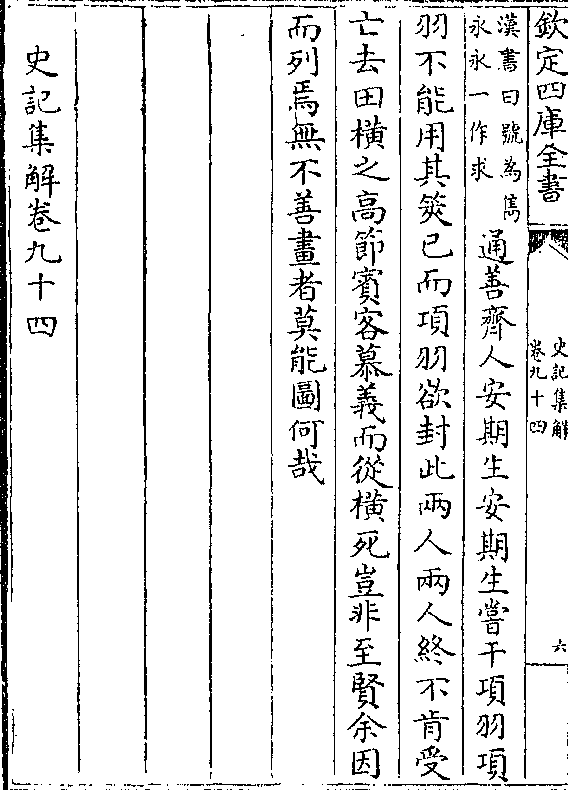 欽定四庫全書
史記集解
卷九十四
六
漢書曰號為雋
永永一作求
通善齊人安期生安期生嘗干項羽項
羽不能用其筴已而項羽欲封此兩人兩人終不肯受
亡去田橫之高節賓客慕義而從橫死豈非至賢余因
而列焉無不善畫者莫能圖何哉
史記集解卷九十四